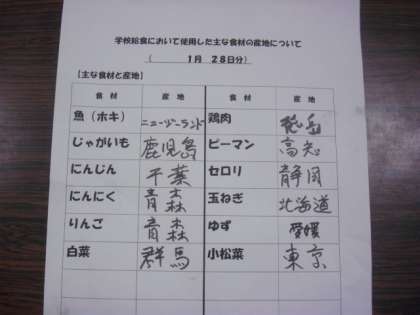 学校給食において使用した主な食材の産地について
（ 1月 28日分）
【主な食材と産地】
食材 産地 食材 産地
魚（ホキ） ニュージーランド 鶏肉
じゃがいも 鹿児島 ピーマン 高知
にんじん 千葉 セロリ 静岡
にんにく 青森 玉ねぎ 北海道
りんご 青森 ゆず 愛媛
白菜 群馬 小松菜 東京